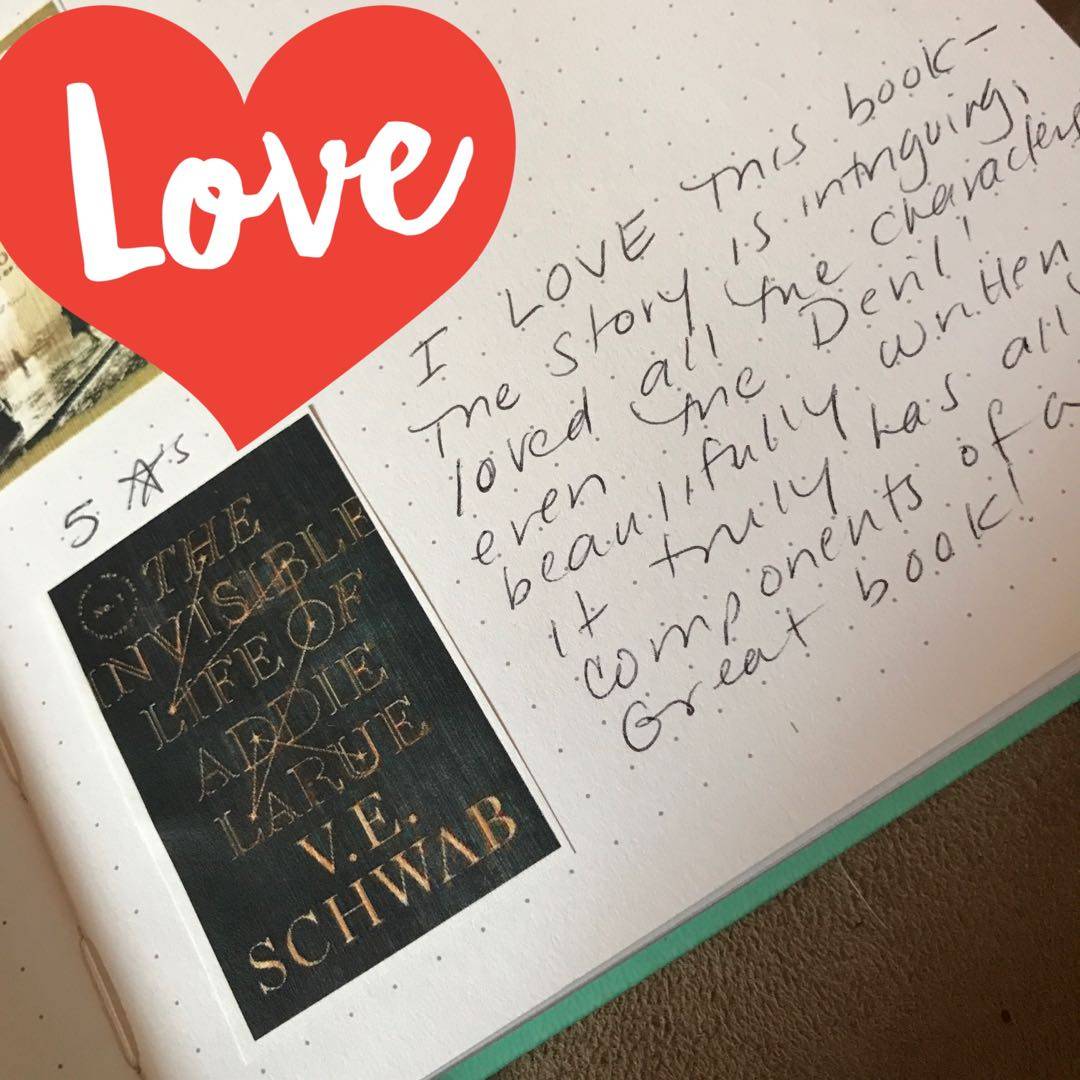 Love
5 ☆s
No. 1
THE
INVISIBLE
LIFE OF
ADDIE
LARUE
V.E.
SCHWAB
I LOVE This book-
The story is intriguing,
loved all the characters
even the Devil!
beautifully written
it truly has all
components of a
Great book!